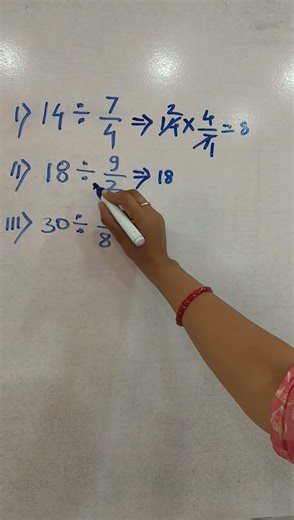 I) 14 ÷ 7/4 ⇒ 14 2 × 4/7 1 = 8
II) 18 ÷ 9/2 ⇒ 18
III) 30 ÷ /8